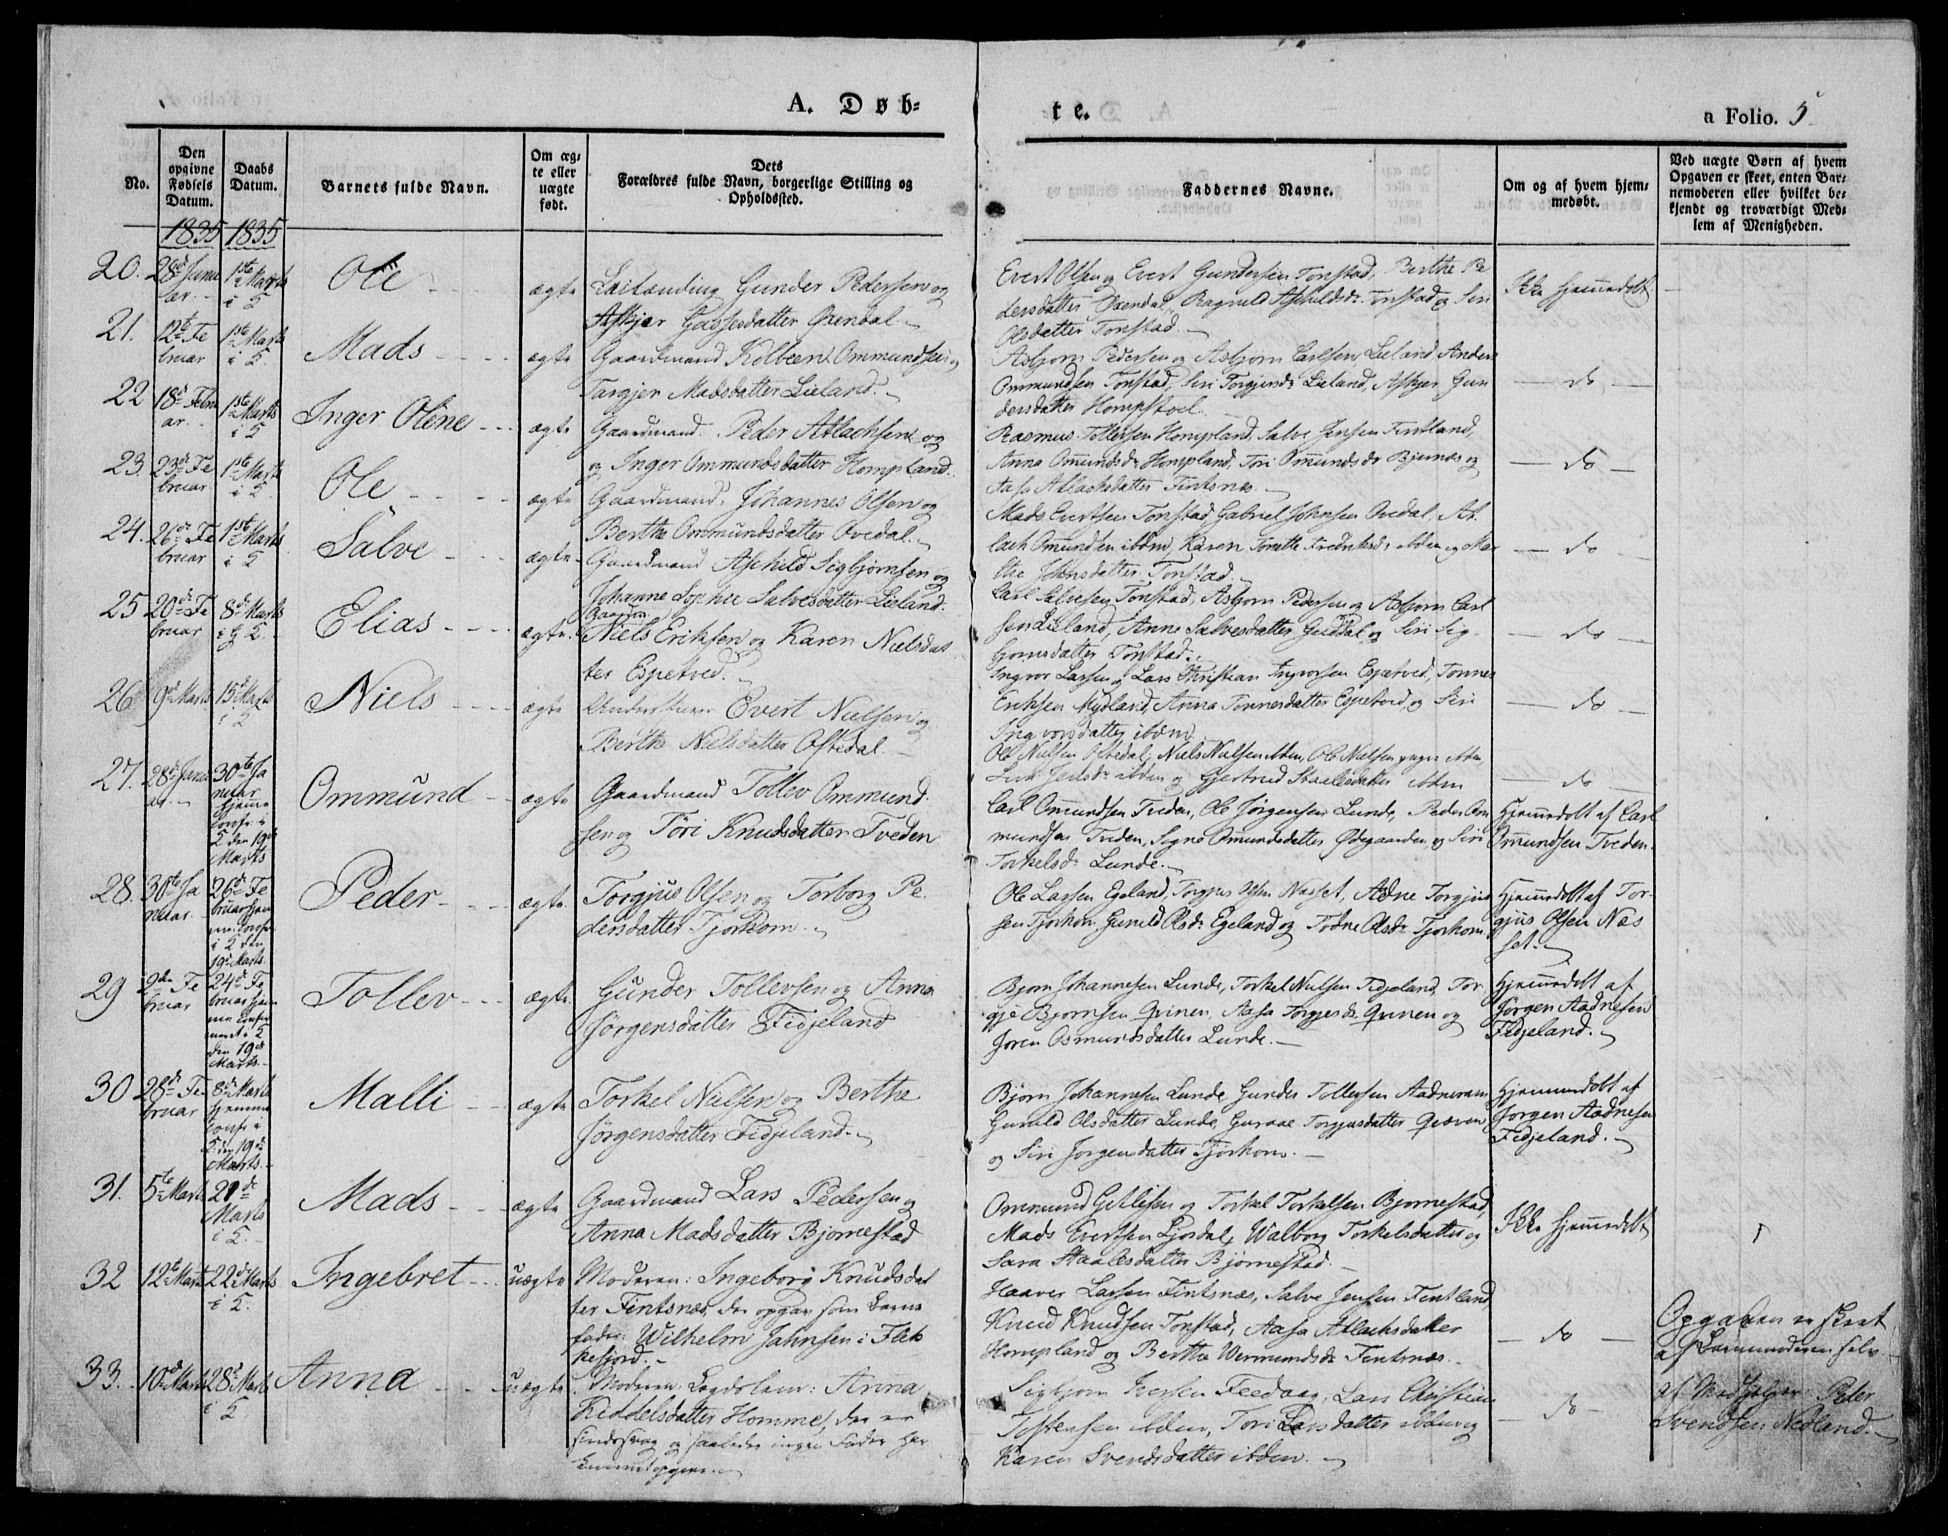 A. Døb-
te.
a Folio. 5
No.
Den opgivne Fødsels Datum.
Daabs Datum.
Barnets fulde Navn.
Om æg-
te eller
uægte
født.
Dets
Forældres fulde Navn, borgerlige Stilling og
Opholdssted.
Faddernes Navne.
Om og af hvem hjem-
medøbt.
Ved uægte Børn af hvem
Opgaven er skeet, enten Bar-
nemoderen eller hvilket be-
kjendt og troværdigt Med-
lem af Menigheden.
1835 1835
20. 28de Janu
ar 1ste Marts
i K
Ole
ægte
Gunder Pedersen og
Askjer Gassesdatter Øxendal
Evert Olsen og Evert Gundersen Tonstad, Berthe Pe
dersdatter Øxendal, Ragnild Aschildsdr Tonstad og Siri
Olsdatter Tonstad.
Ikke hjemmedøbt
21. 12te Fe
bruar 1ste Marts
i K.
Mads
ægte
Gaardmand Kolbeen Ommundsen og
Targjer Madsdatter Lieland.
Asbjørn Pedersen og Asbjørn Carlsen Lieland, Anders
Ommundsen Tonstad, Siri Torgjusdr Lieland, Askjer Gun
dersdatter Hompstoel.
do
22 18de Febru
ar 1ste Marts
i K
Inger Oline
ægte
Gaardmand Peder Atlachsen og
og Inger Ommundsdatter Hompland.
Rasmus Tollefsen Hompland, Salve Jensen Fintland,
Anna Omundsdr Hompland, Tori Omundsdr Bjunes og
Aasa Atlachsdatter Fintsnæs.
do
23. 23de Fe
bruar 1ste Marts
i K.
Ole
ægte
Gaardmand Johannes Olsen og
Berthe Ommundsdatter Ovedal.
Mads Evertsen Tonstad, Gabriel Johnsen Ovedal, At
lach Omundsen ibdm, Karen Tonette Fredriksdr ibden og Mar
the Johnsdatter Tonstad.
do
24. 26de Fe
bruar 1ste Marts
i K
Salve
ægte
Gaardmand Aschild Sigbjørnsen og
Johanne Sophie Salvesdatter Lieland.
Carl Salvesen Tonstad, Asbjørn Pedersen og Asbjørn Carl
sen Lieland, Anne Salvesdatter Guddal og Siri Sig
bjørnsdatter Tonstad.
do
25 20de Fe
bruar 8de Marts
i G K.
Elias
ægte
Niels Eriksen og Karen Nielsdat
ter Espetved.
Ingvor Larsen og Lars Christian Ingvorsen Espetved, Tonnes
Eriksen Mydland, Anna Tonnesdatter Espetved og Siri
Ingvorsdatter ibdm
do
26 9de Marts 15de Marts
i K
Niels
ægte
Evert Nielsen og
Berthe Nielsdatter Oftedal.
Ole Nielsen Oftedal, Niels Nielsen ibden, Ole Nielsen yngre ibden
ibden og Gjertrud Staalesdatter ibden
do
27. 28de Janu
ar 30te Ja
nuar
hjemme
confr i
K den 19de
Marts
Ommund
ægte
Gaardmand Tollev Ommund
sen og Tori Knudsdatter Tveden
Carl Omundsen Tveden, Ole Jørgensen Lunde, Peder Om
mundsen Tveden, Signe Omundsdatter Ødegaarden og Siri
Torkelsdr Lunde.
Hjemmedøbt af Carl
Omundsen Tveden.
28. 30te Ja
nuar 26de Fe
bruar hjem
me confr
i K den
19de Marts
Peder
ægte
Torgjus Olsen og Torborg Pe
dersdatter Tjorhom.
Ole Larsen Egeland, Torgjus Olsen Næsset, Adne Torgjus
sen Tjorhom, Gunild Olsdr Egeland og Todne Olsdr Tjorhom
Hjemmedøbt af Tor
gjus Olsen Næs
set.
29 2den Fe
bruar 24de Fe
bruar hjem
me confir
meret i K
den 19de
Marts.
Tollev
ægte
Gunder Tollevsen og Anna
Jørgensdatter Fidjeland
Bjørn Johannesen Lunde, Torkel Nielsen Fidjeland, Tor
gje Bjørnsen Qvinen, Aasa Torgjersdr Qvinen og
Joren Osmundsdatter Lunde.
Hjemmedøbt af
Jørgen Aadnesen
Fidjeland.
30 28de Fe
bruar 8de Marts
hjemme
confr i
K. den 19de
Marts.
Malli
ægte
Torkel Nielsen og Berthe
Jørgensdatter Fidjeland.
Bjørn Johannesen Lunde, Gunder Tollefsen Aadneram
Gunild Olsdatter Lunde, Guraae Torgjusdatter Qvæven
og Siri Jørgensdatter Tjorhom.
Hjemmedøbt af
Jørgen Aadnesen
Fidjeland.
31. 5te Marts 21de
Marts
i K.
Mads
ægte
Gaardmand Lars Pedersen og
Anna Madsdatter Bjørnestad
Ommund Getlesen og Torkel Torkelsen Bjørnestad,
Mads Evertsen Ljosdal, Walborg Torkelsdatter og
Sara Staalesdatter Bjørnestad.
Ikke hjemmedøbt
32 12te Marts 22de Marts
i K.
Ingebret
uægte
Moderen: Ingeborg Knudsdat
ter Fintsnæs, der opgav som Barne
fader Wilhelm Jahnsen i Flek
kefjord.
Haaver Larsen Fintsnæs, Salve Jensen Fintland
Knud Knudsen Tonstad, Aasa Atlachsdatter
Hompland og Berthe Wermundsdr Fintsnæs.
do
Opgaven er skeet
af Barnemoderen selv.
33. 10de Marts 28de Marts
i K.
Anna
uægte
Moderen: Anna
Kiddelsdatter Homme, der er
sindssvag og saaledes ingen Fader har
kunnet opgive.
Sigbjørn Iversen Feedaag, Lars Christian
Tostensen ibden, Tori Larsdatter ibden og
Karen Svendsdatter ibden.
do
af Medhjelper Peder
Svendsen Nedland.